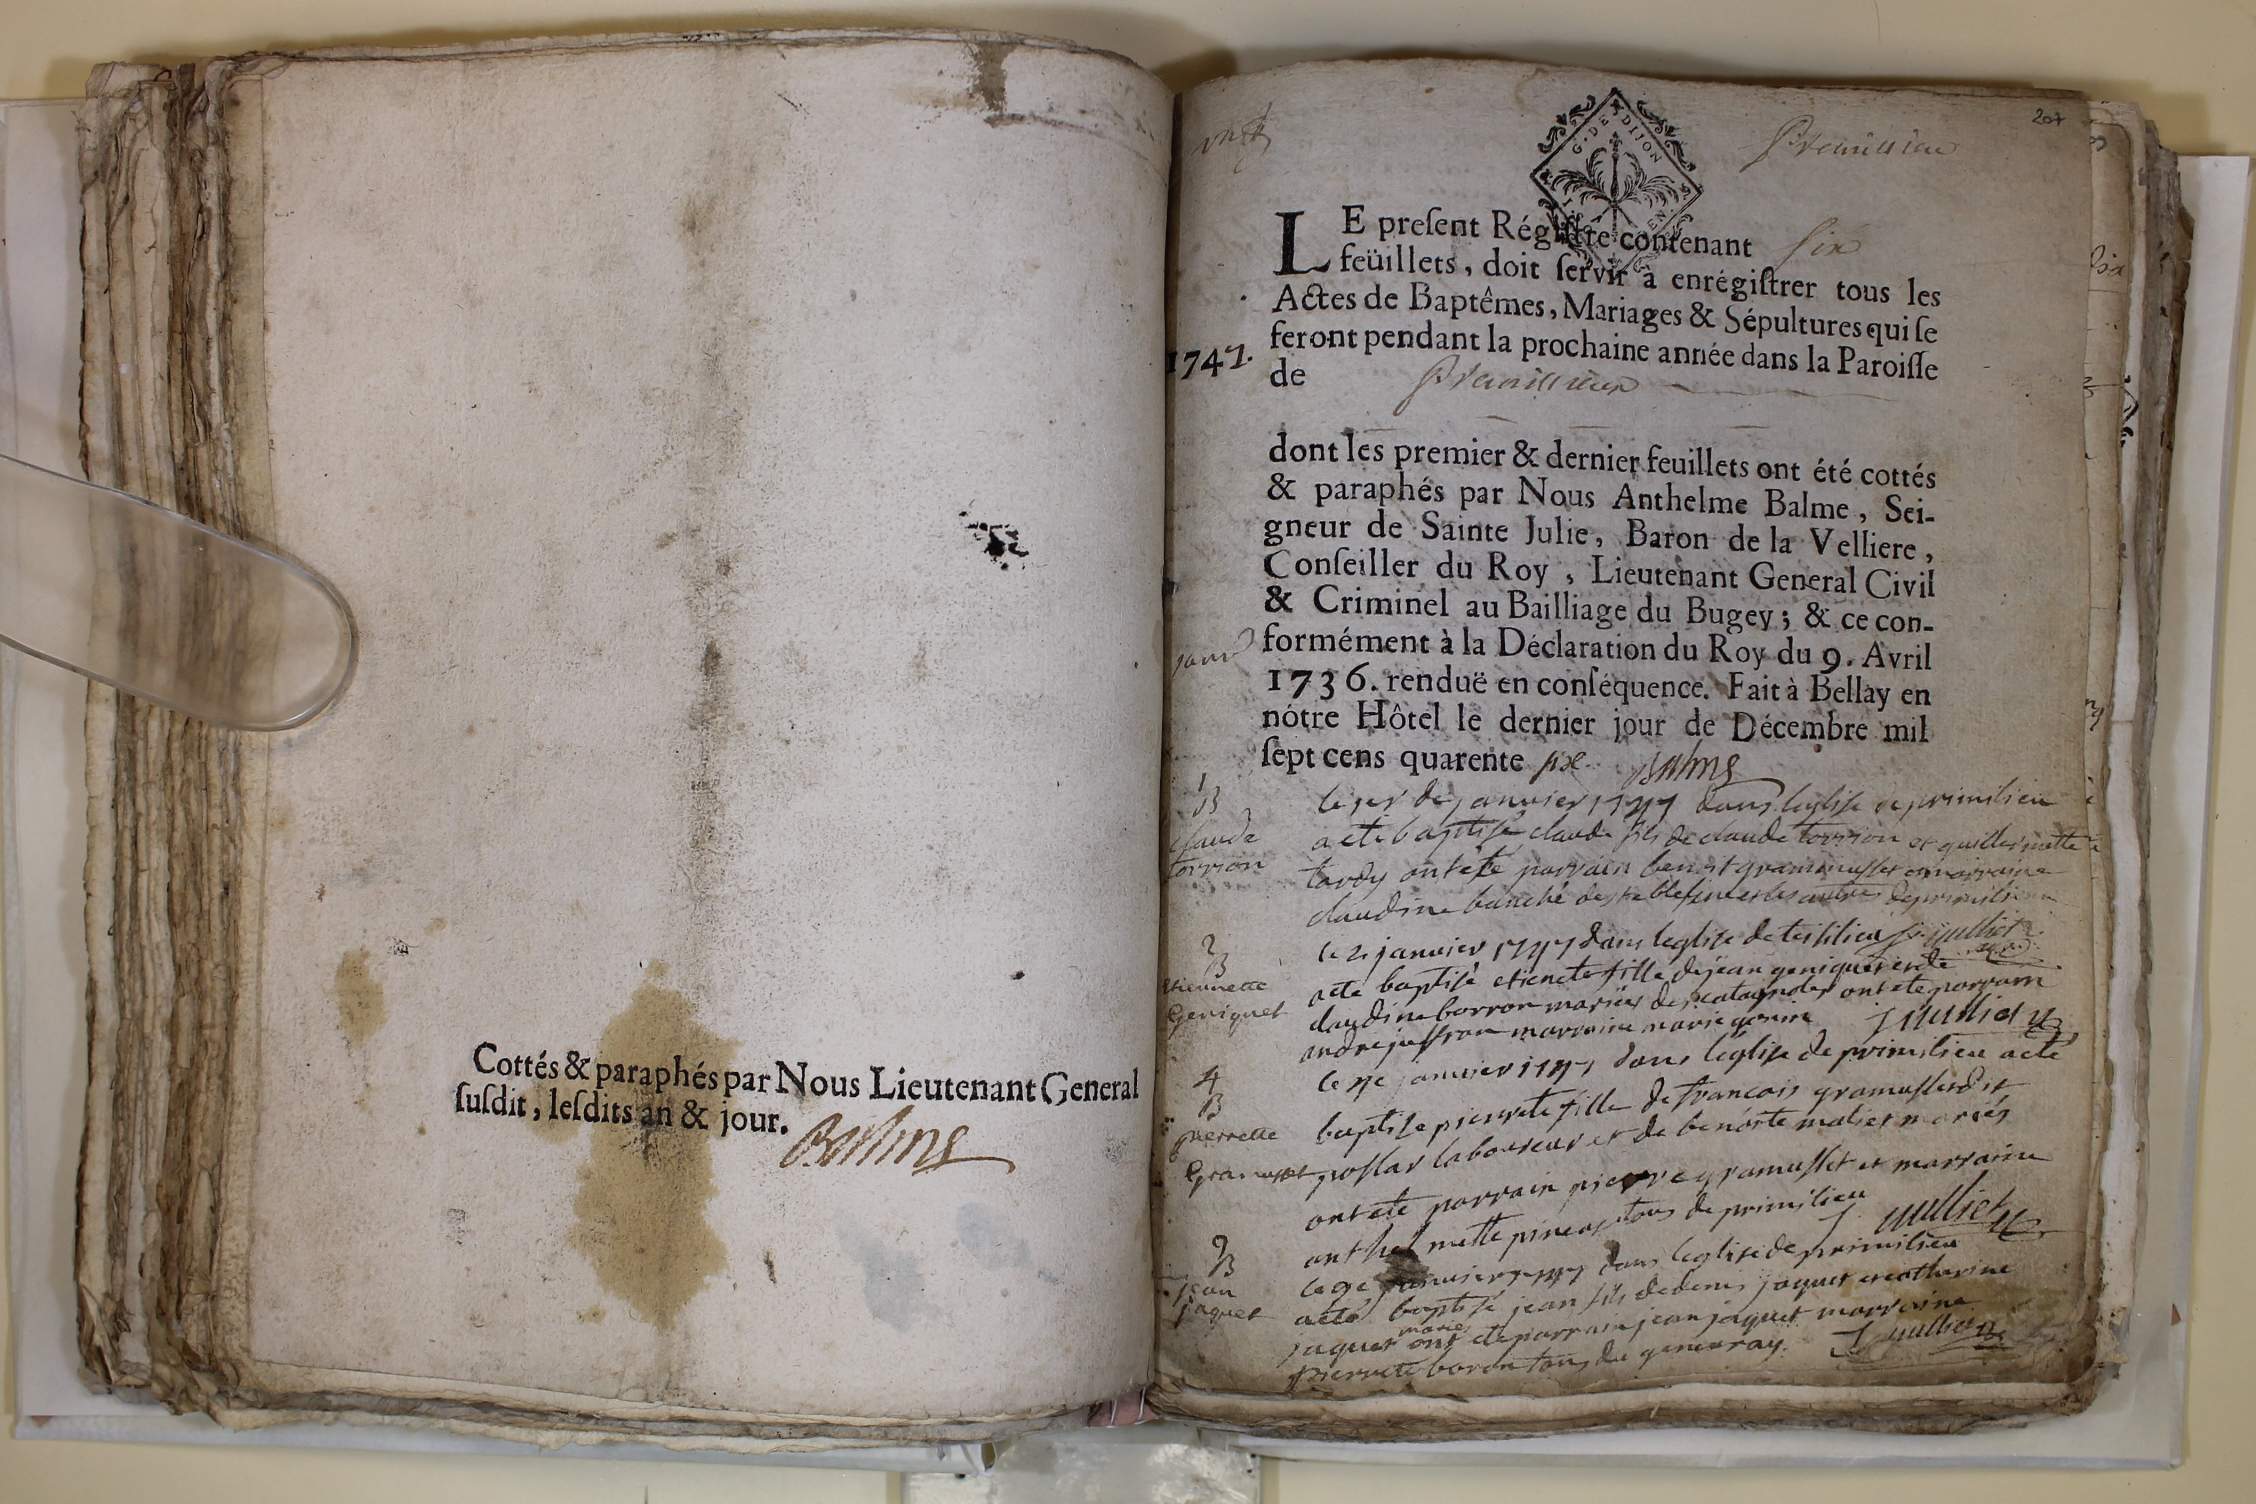 Cottés & paraphés par Nous Lieutenant General
ſuſdit, leſdits an & jour.
Balme
207
G. DE DIJON
LE preſent Régiſtre contenant six
feüillets, doit ſervir à enrégiſtrer tous les
Actes de Baptêmes, Mariages & Sépultures qui ſe
feront pendant la prochaine année dans la Paroiſſe
1747.
de
dont les premier & dernier feuillets ont été cottés
& paraphés par Nous Anthelme Balme, Sei-
gneur de Sainte Julie, Baron de la Velliere,
Conſeiller du Roy, Lieutenant General Civil
& Criminel au Bailliage du Bugey; & ce con-
formément à la Déclaration du Roy du 9. Avril
janv
1736. renduë en conſéquence. Fait à Bellay en
nôtre Hôtel le dernier jour de Décembre mil
ſept cens quarente six Balme
1
B
claude
torrion
le 1er de janvier 1747 dans leglise de primilieu
a eté baptisé claude fils de claude torrion et guillermette
tardy ont eté parrain benoit gramusset et marraine
claudine les autres de primilieu
2
B
etiennette
Geniquet
le 2 janvier 1747 dans leglise de
a eté baptisé etienete fille de jean geniquet et de
claudine borron mariés ont eté parrain
andre marraine marie
4
B
pierrette
Gramusset
le 4e janvier 1747 dans leglise de primilieu a eté
baptisé pierrete fille de francois gramusset dit
laboureur et de benoite mariés
ont eté parrain pierre gramusset et marraine
anthelmette tous de primilieu
9
B
jean
jaquet
le 9e janvier 1747 dans leglise de primilieu
a eté baptisé jean fils de denis jaquet et catherine
jaquet mariés ont eté parrain jean jaquet marraine
pierrete boron tous du